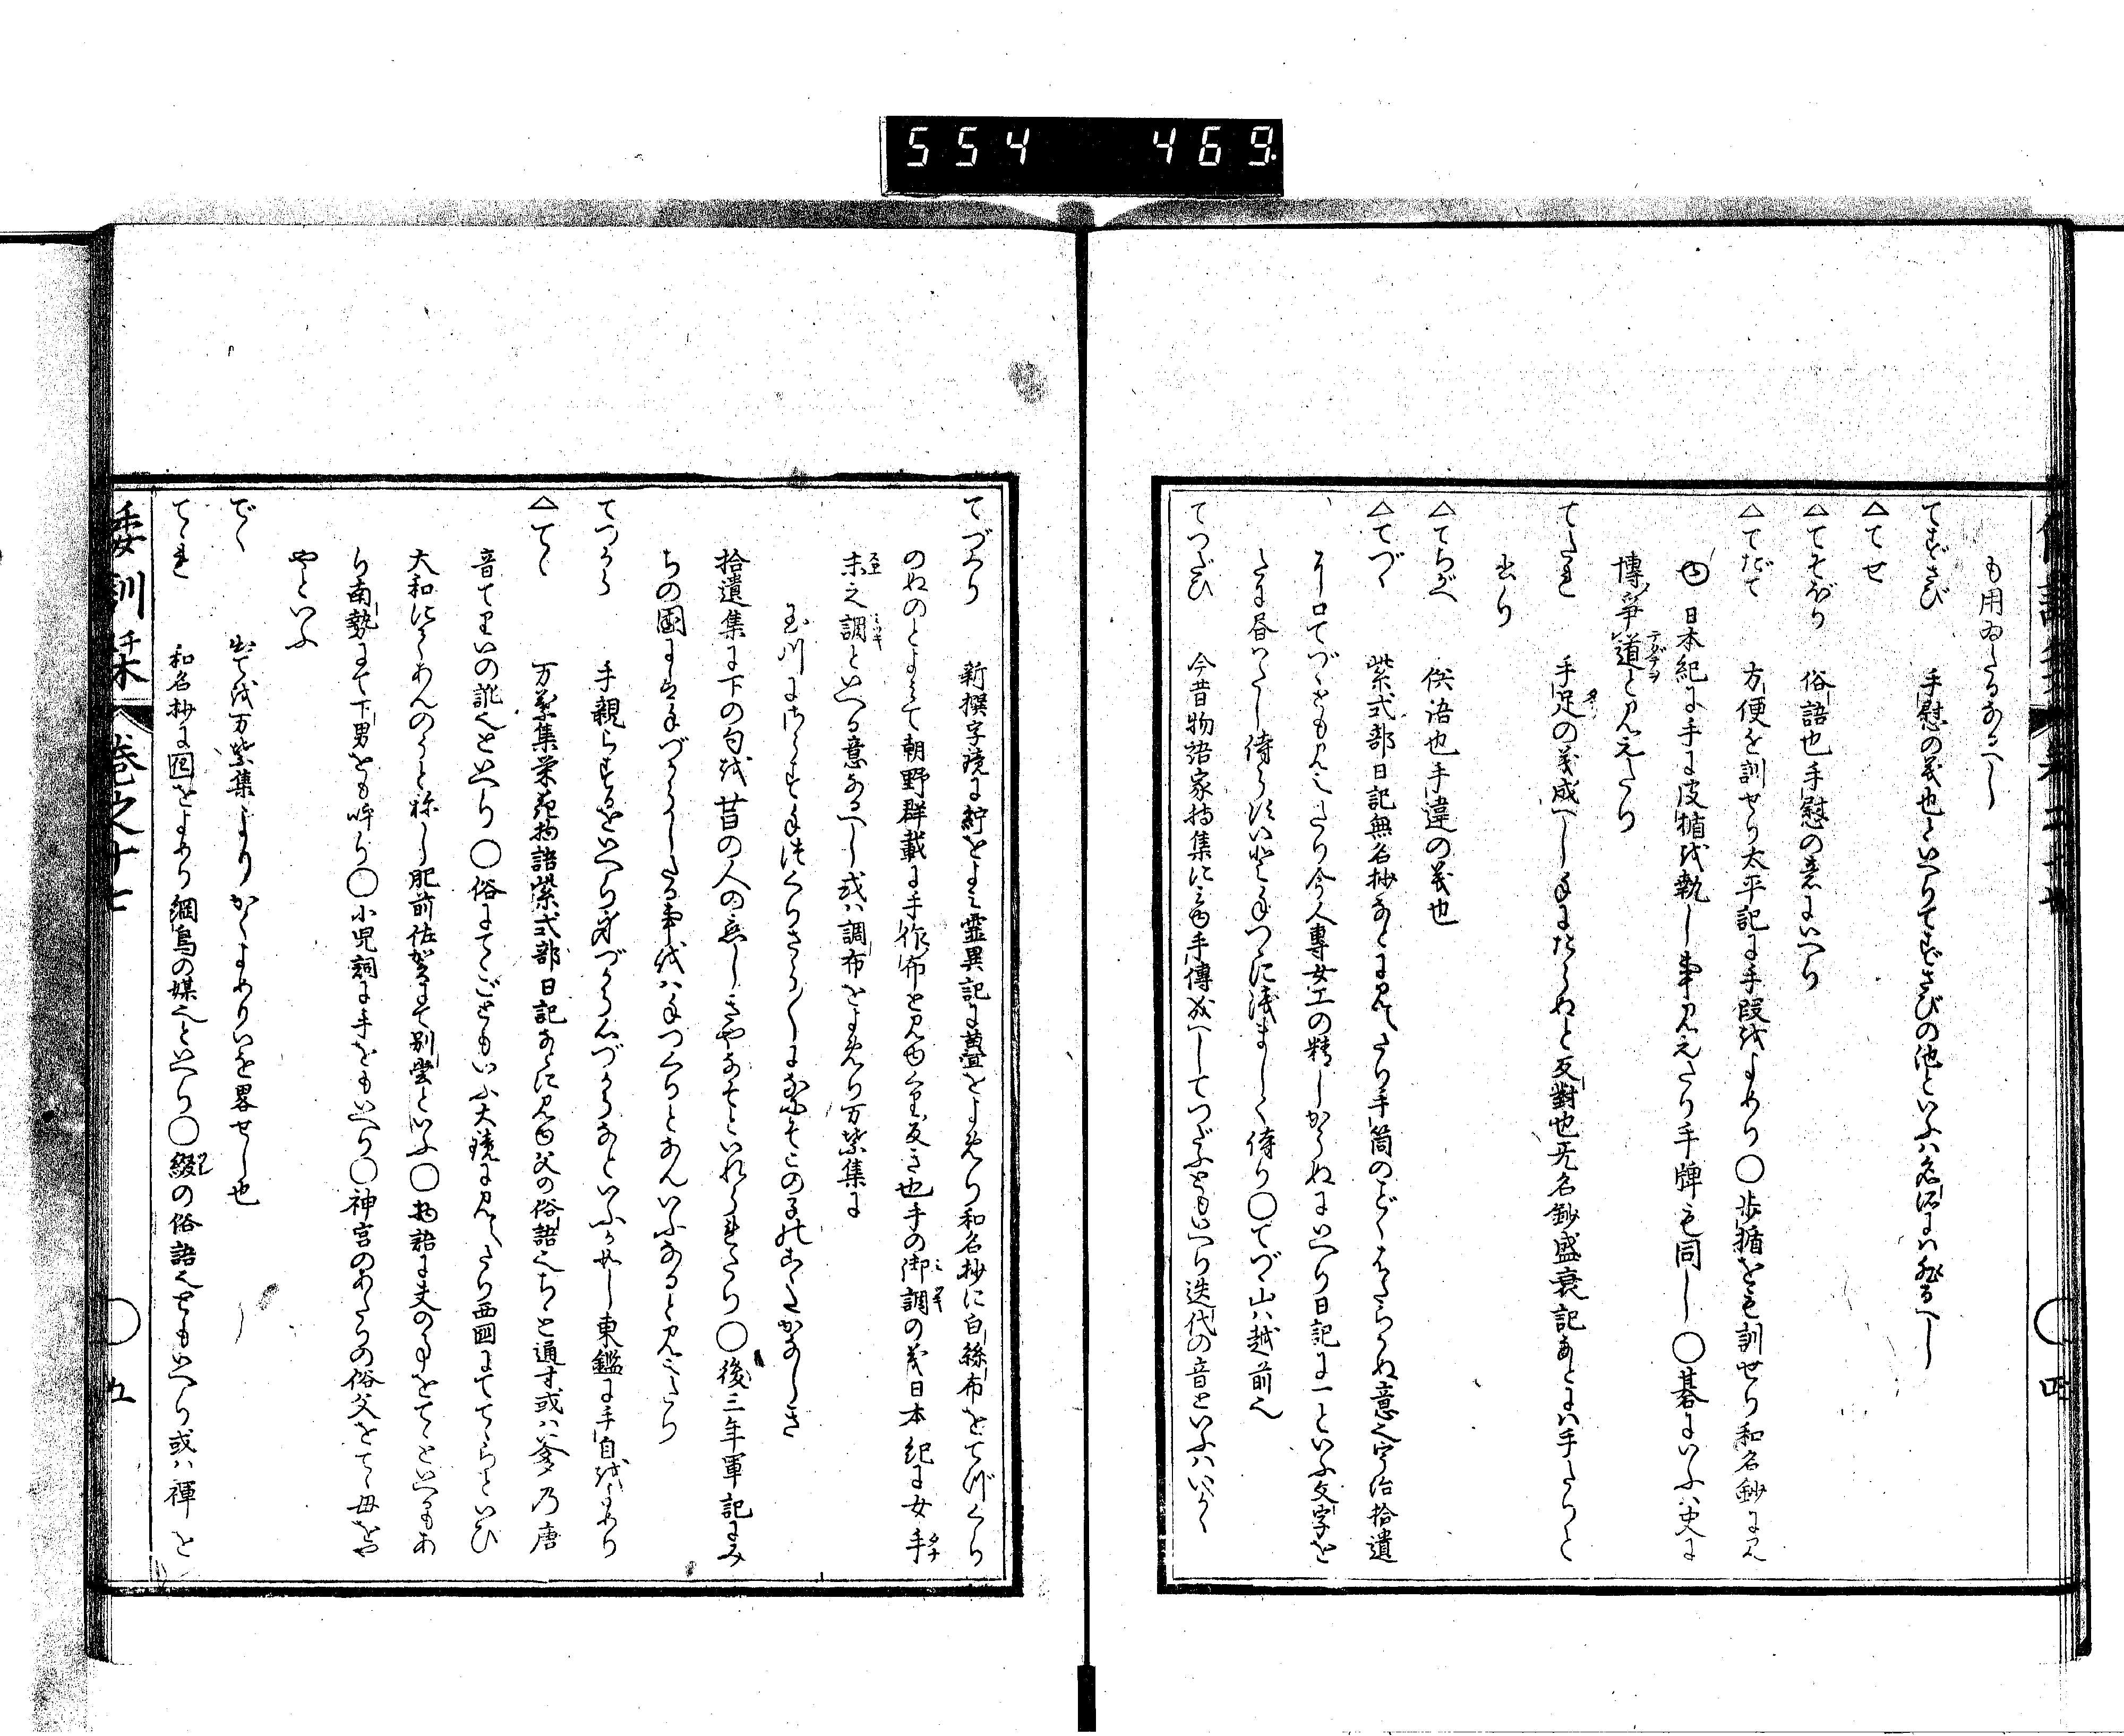 554 469.
も用ゐたるなるへし
てすさび 手慰の義也といへりてすさびの池といふハ名所にハ非るへし
△てせ
△てそぼり 俗語也手慰の意にいへり
△てだて 方便を訓せり太平記に手段をよめり○歩楯をも訓せり和名鈔に見
ゆ 日本紀に手に皮楯を執し事見えたり手牌も同し○碁にいふハ史に
博争道テダテヲと見えたり
てたれ 手足の義成へし手にたらぬと反對也无名鈔盛衰記なとにハ手たりと
出り
△てちがへ 俗語也手違の義也
△てづゝ 紫式部日記無名抄なとに見えたり手筒のどくはたらかぬ意也宇治拾遺
に口てづゝとも見えたり今人専女工の精しからぬにいへり日記に一といふ文字を
たに書わたし侍らすいとてつゝに浅ましく侍り○てづゝ山ハ越前也
てつだひ 今昔物語家持集に見ゆ手傳成へしてつだふともいへり迭代の音といふハいかゝ
四
てづくり 新撰字鏡に紵をよみ霊異記に をよめり和名抄に白絲布をてづくり
のぬのとよみて朝野群載に手作布と見ゆくり反き也手の御調ミツキの義日本紀に女手タナ
末スヱ之調ミツキといへる意なるへし或ハ調布をよめり万葉集に
玉川にさらす手つくりさら〳〵になにそこの子のこゝたかなしき
拾遺集に下の句を昔の人の恋しきやなそといれられたり○後三年軍記にみ
ちの國に手づからしたる事をハ手つくりとなんいふなると見えたり
てつから 手親らするをいへり身づから心づからなといふか如し東鑑に手自をよめり
△てゝ 万葉集栄花物語紫式部日記なとに見ゆ父の俗語也ちゝと通す或ハ爹乃唐
音てヱいの訛也といへり○俗にてゝごともいふ大鏡に見えたり西國にててらといひ
大和にてあんのうと称し肥前佐賀にて別當といふ○物語に夫の事をてゝといへるもあ
り南勢にて下男をも呼り○小児詞に手をもいへり○神宮のあたりの俗父をてゝ母をや
やといふ
でゝ 出てを万葉集よりかくよめりいを畧せし也
てゝれ 和名抄に囮をよめり網鳥の媒也といへり○綴の俗語也ともいへり或ハ褌と
倭訓栞 巻之十七 五